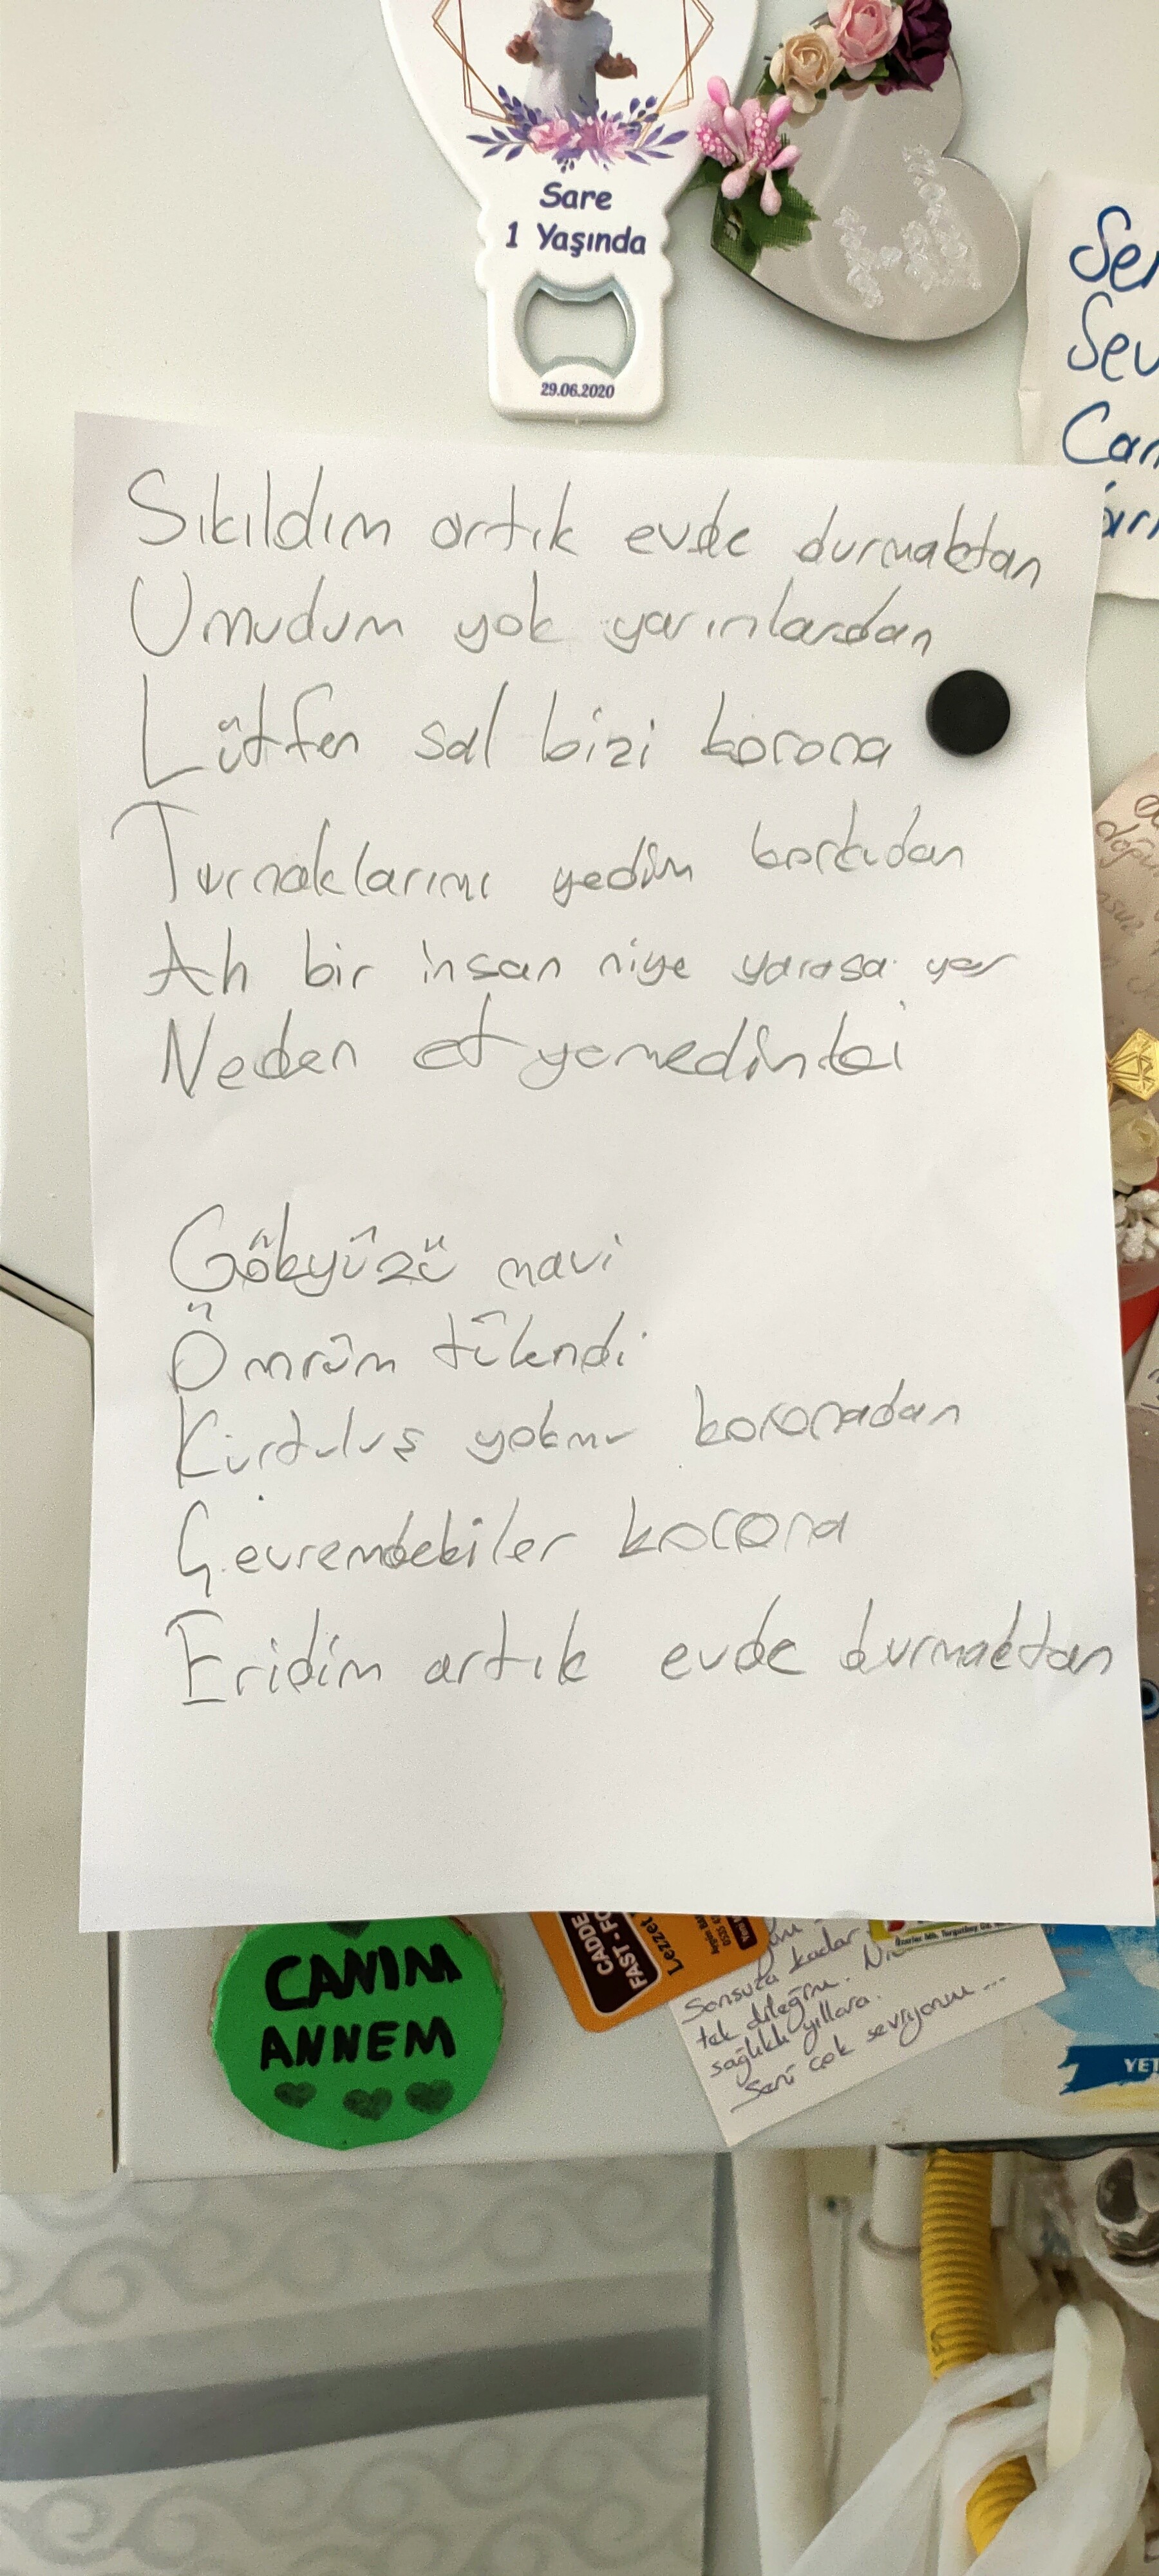 Sare
1 Yaşında
29.06.2020
Sıkıldım artık evde durmaktan
Umudum yok yarınlardan
Lütfen sal bizi korona
Turnaklarımı yedim korkudan
Ah bir insan niye yarasa yer
Neden et yemedinki
Gökyüzü mavi
Ömrüm tükendi
Kurtuluş yokmu koronadan
Çevremdekiler korona
Eridim artık evde durmaktan
CANIM
ANNEM
CADDE
FAST - FO
Lezzet
Sonsuza kadar
tek dileğim.
sağlıklı yıllara.
Seni çok seviyorum...
YET